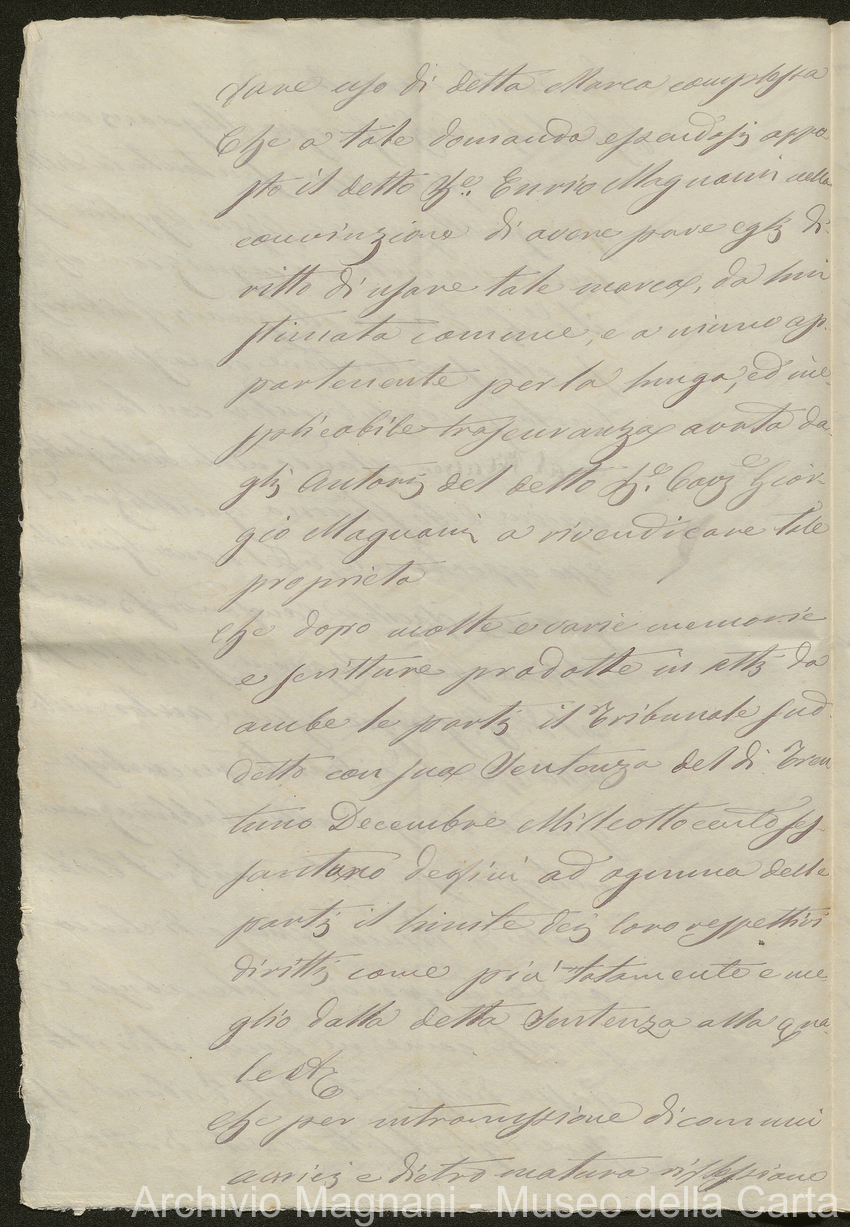 fare uso di detta Marca complessa
Che a tale domanda essendosi oppo
sto il detto Sr. Enrico Magnani nella
convinzione di avere pure eglj di
ritto di usare tale marca, da lui
stimata comune, e a niuno ap-
partenente per la lunga, ed ine-
splicabile trascuranza avuta da-
glj Autorj del detto Sr. Cave Gior-
gio Magnani a rivendicare tale
proprietà
che dopo molte e varie memorie
e scritture prodotte in attj da
ambe le partj il Tribunale sud-
detto con sua Sentenza del di Tren
tuno Decembre Milleottocento ses-
santuno definì ad ognuna delle
partj il limite dej loro respettivi
dirittj come più latamente e me
glio dalla detta Sentenza alla qua-
le &
che per intromissione di comuni
amicj e dietro matura riflessione
Archivio Magnani - Museo della Carta